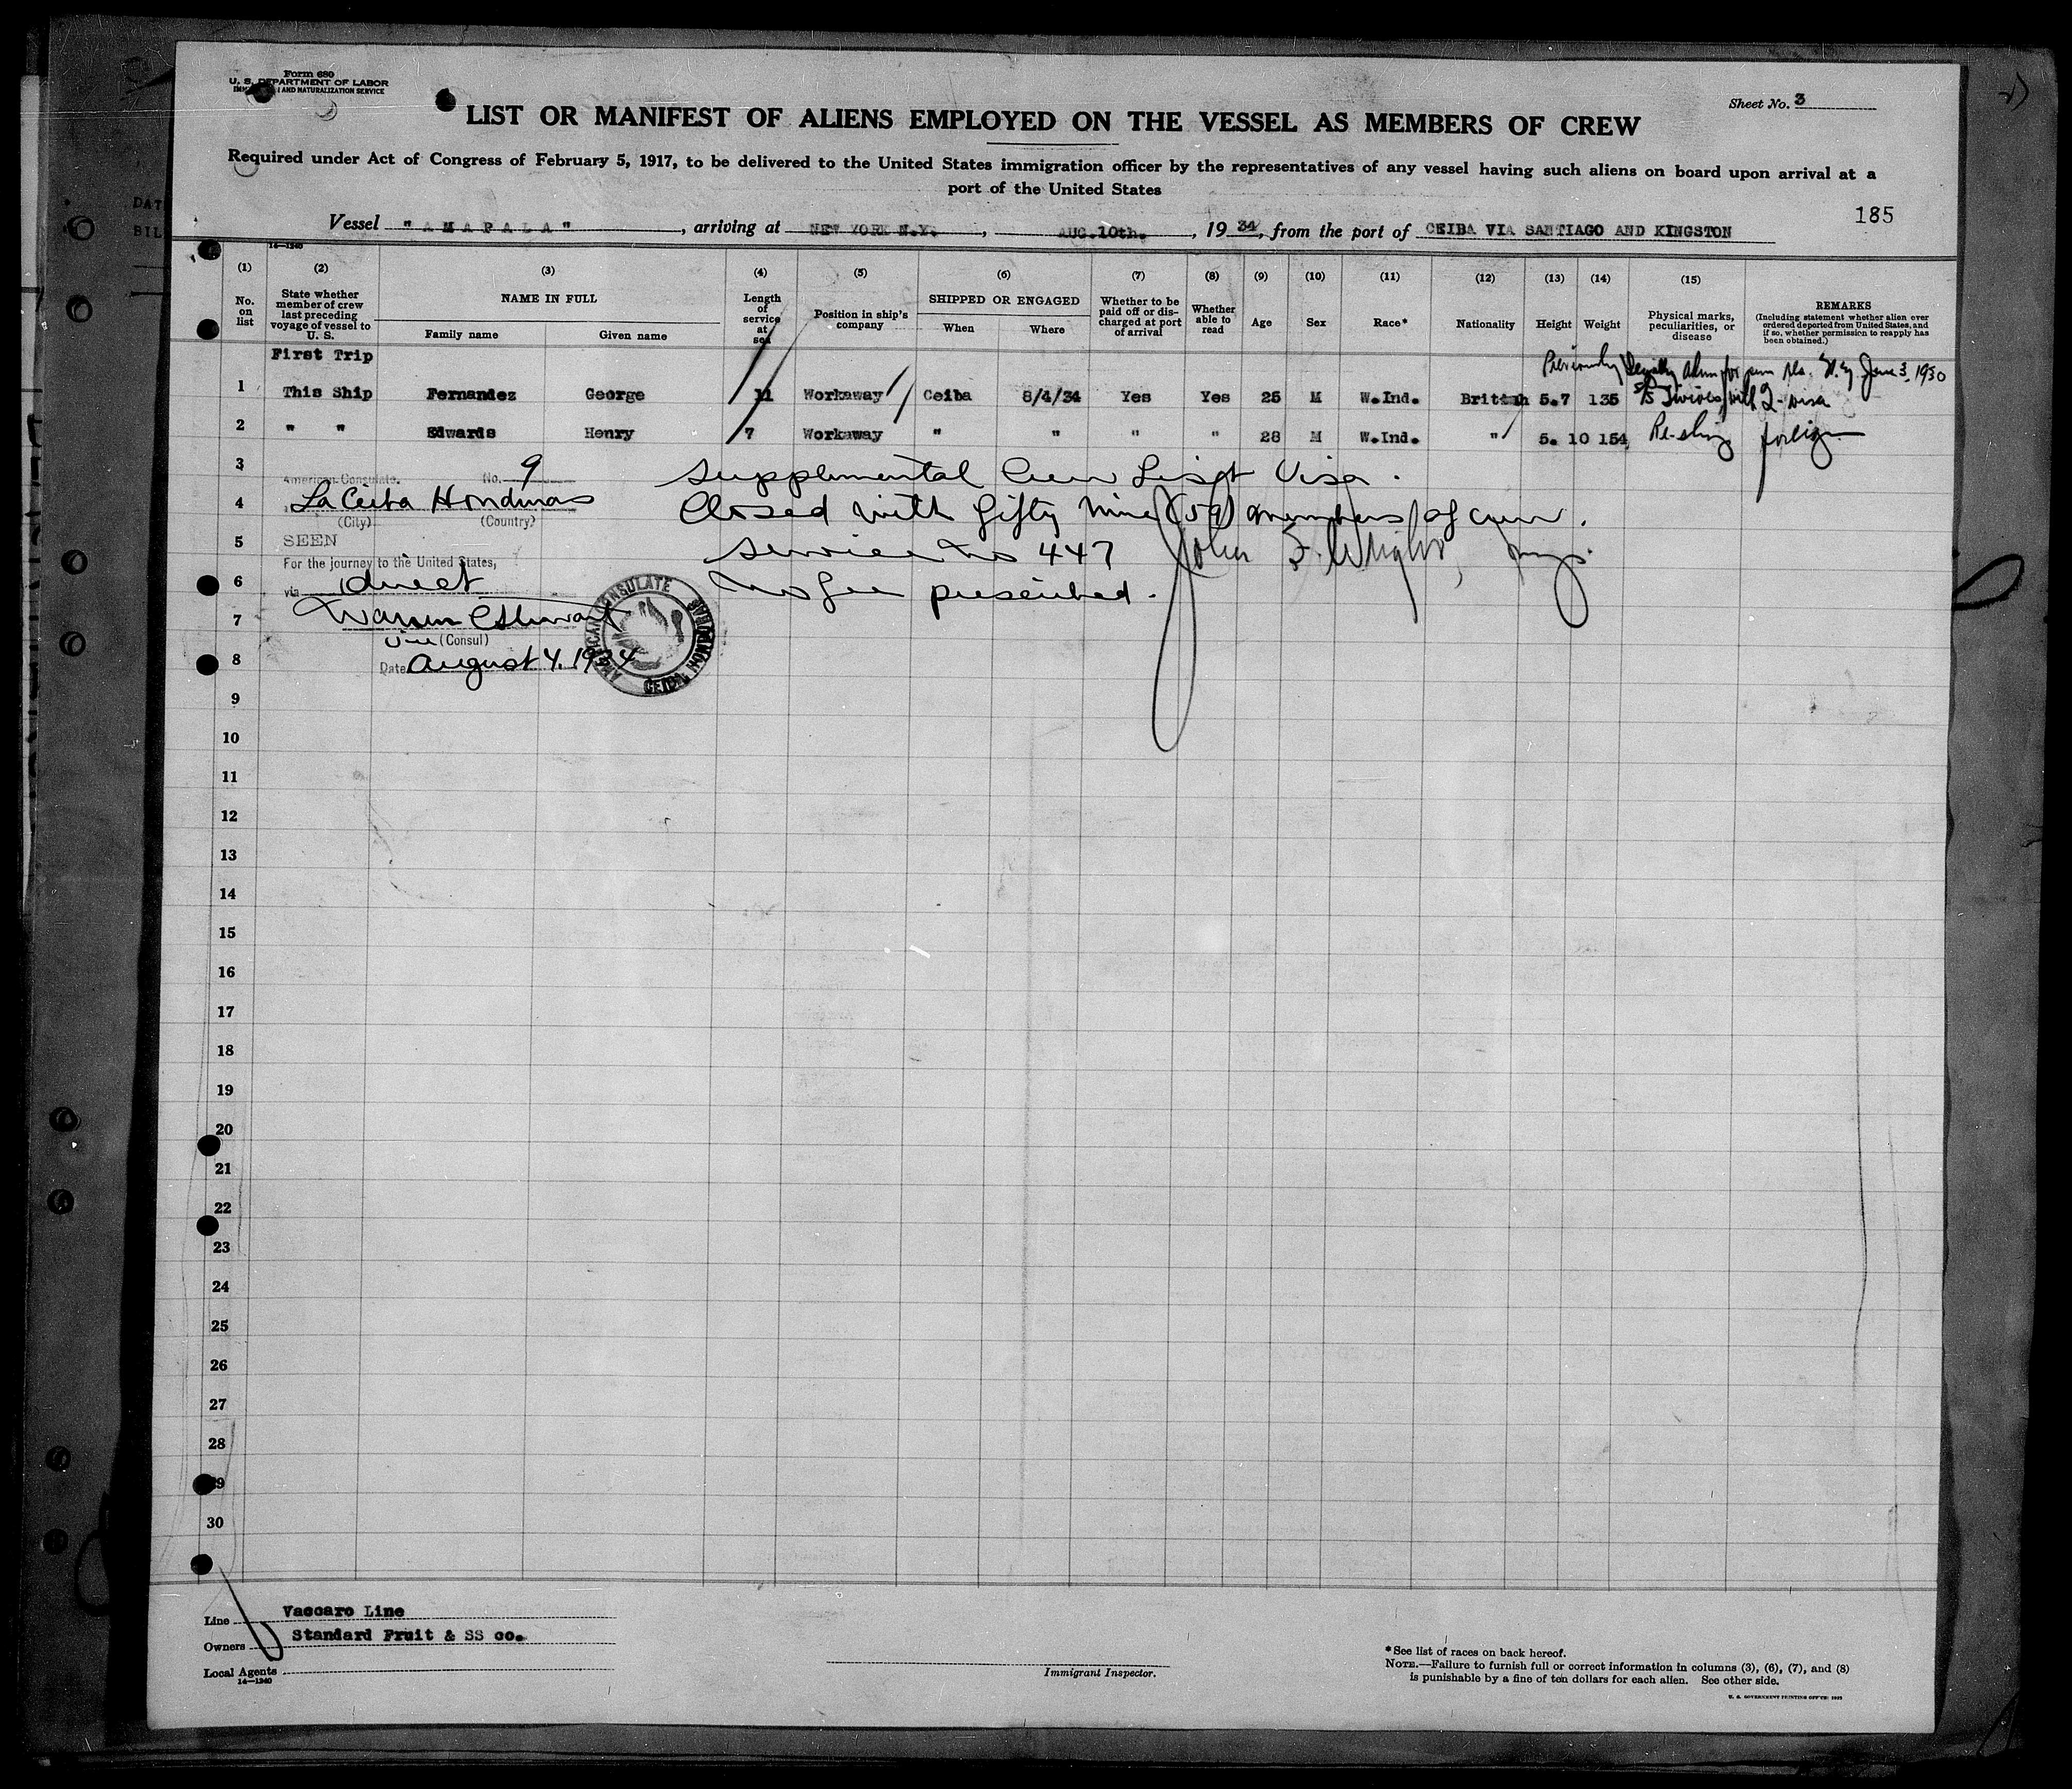 Form 680
U. S. DEPARTMENT OF LABOR
AND NATURALIZATION SERVICE
Sheet No. 3
LIST OR MANIFEST OF ALIENS EMPLOYED ON THE VESSEL AS MEMBERS OF CREW
Required under Act of Congress of February 5, 1917, to be delivered to the United States immigration officer by the representatives of any vessel having such aliens on board upon arrival at a
port of the United States
185
Vessel "AMAPALA", arriving at NEW YORK N.Y., AUG.10th., 1934, from the port of CEIBA VIA SANTIAGO AND KINGSTON
14-1240
(1) (2) (3) (4) (5) (6) (7) (8) (9) (10) (11) (12) (13) (14) (15)
No. on list
State whether member of crew last preceding voyage of vessel to U. S.
NAME IN FULL
Family name Given name
Length of service at sea
Position in ship's company
SHIPPED OR ENGAGED
When Where
Whether to be paid off or discharged at port of arrival
Whether able to read
Age Sex Race* Nationality Height Weight
Physical marks, peculiarities, or disease
REMARKS
(Including statement whether alien ever ordered deported from United States, and if so, whether permission to reapply has been obtained.)
First Trip
Previously legally adm for perm res. N.Y. June 3, 1930
1 This Ship Fernandez George 11 Workaway Ceiba 8/4/34 Yes Yes 25 M W.Ind. British 5.7 135 visa
2 " " Edwards Henry 7 Workaway " " " " 28 M W.Ind. " 5.10 154 Re-ship foreign
3 American Consulate. No. 9 Supplemental Crew List Visa.
4 La Ceiba Honduras Closed with fifty nine (59) members of crew.
(City) (Country)
5 SEEN Service No 447 John F. Wright, Jr.
For the journey to the United States,
6 via direct No fee prescribed.
7 Warren C Stewart
Vice (Consul)
8 Date August 4. 1934
AMERICAN CONSULATE CEIBA HONDURAS
9
10
11
12
13
14
15
16
17
18
19
20
21
22
23
24
25
26
27
28
29
30
Line Vaccaro Line
Owners Standard Fruit & SS co.
Local Agents
14-1240
Immigrant Inspector.
*See list of races on back hereof.
NOTE.—Failure to furnish full or correct information in columns (3), (6), (7), and (8)
is punishable by a fine of ten dollars for each alien. See other side.
U. S. GOVERNMENT PRINTING OFFICE